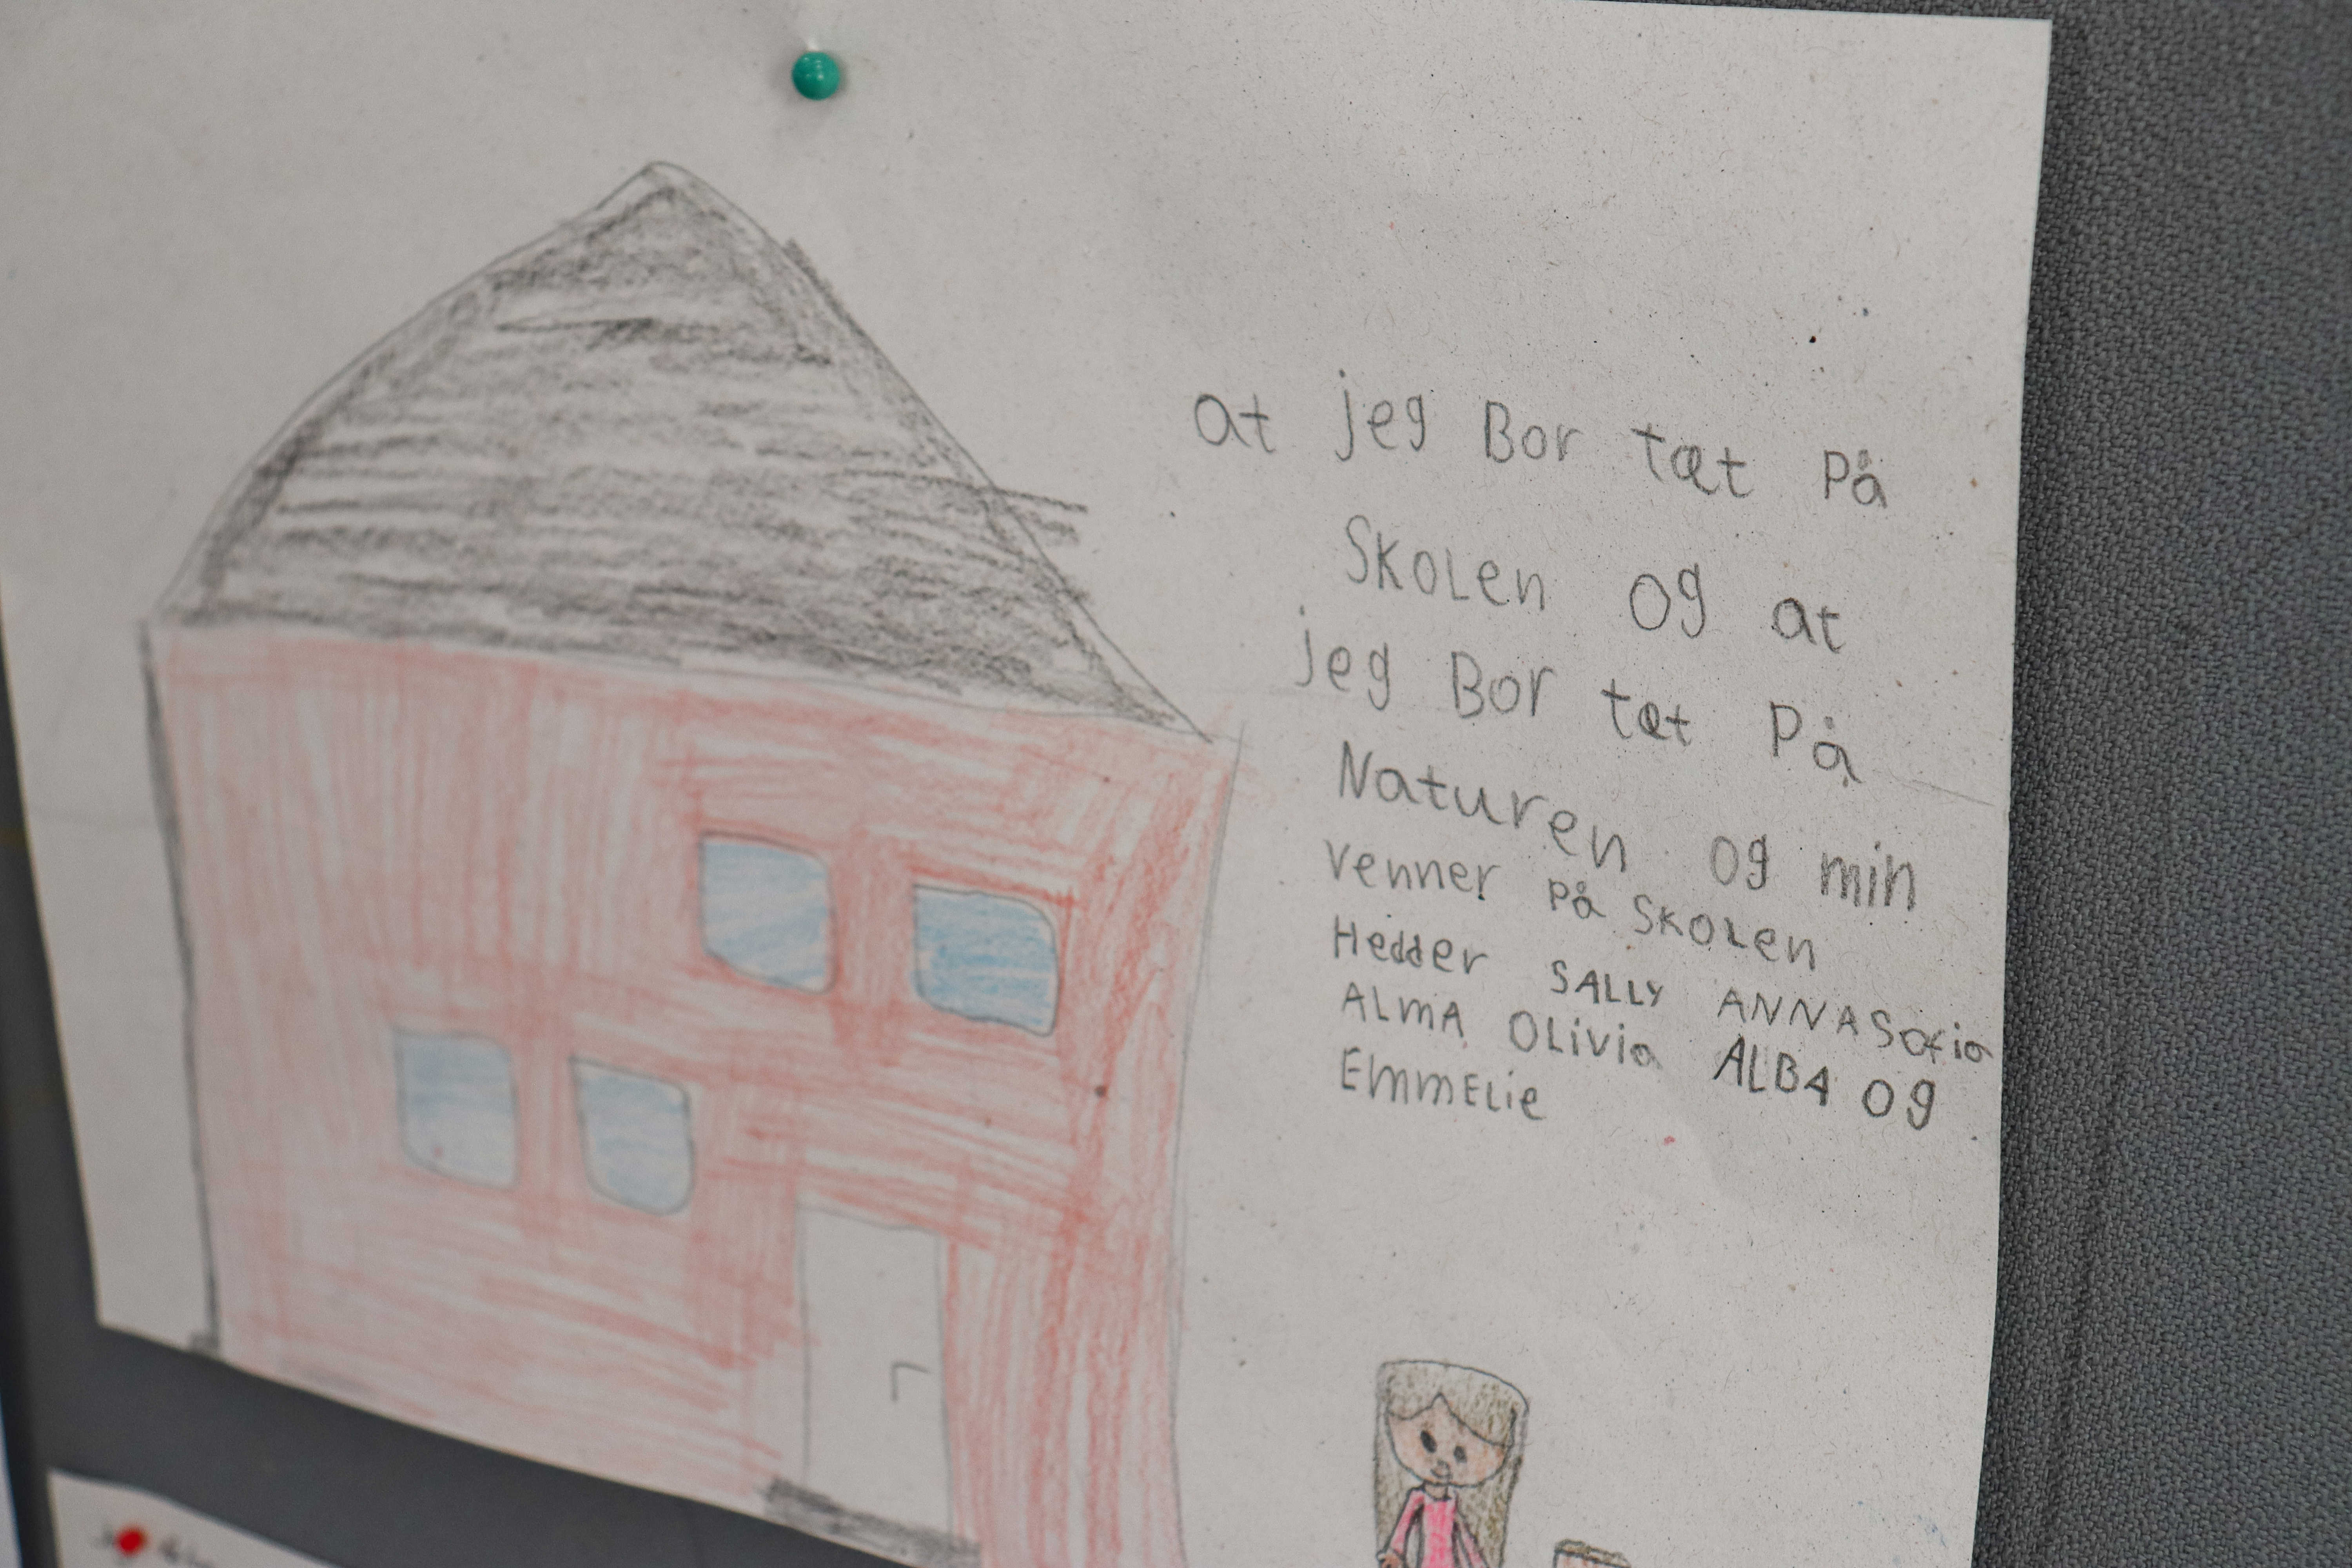 at jeg Bor tæt På
SKOLen og at
jeg Bor tæt På
Naturen og min
venner på SKOLen
Hedder SALLY ANNASofia
ALMA OLivia ALBA og
EmmELie